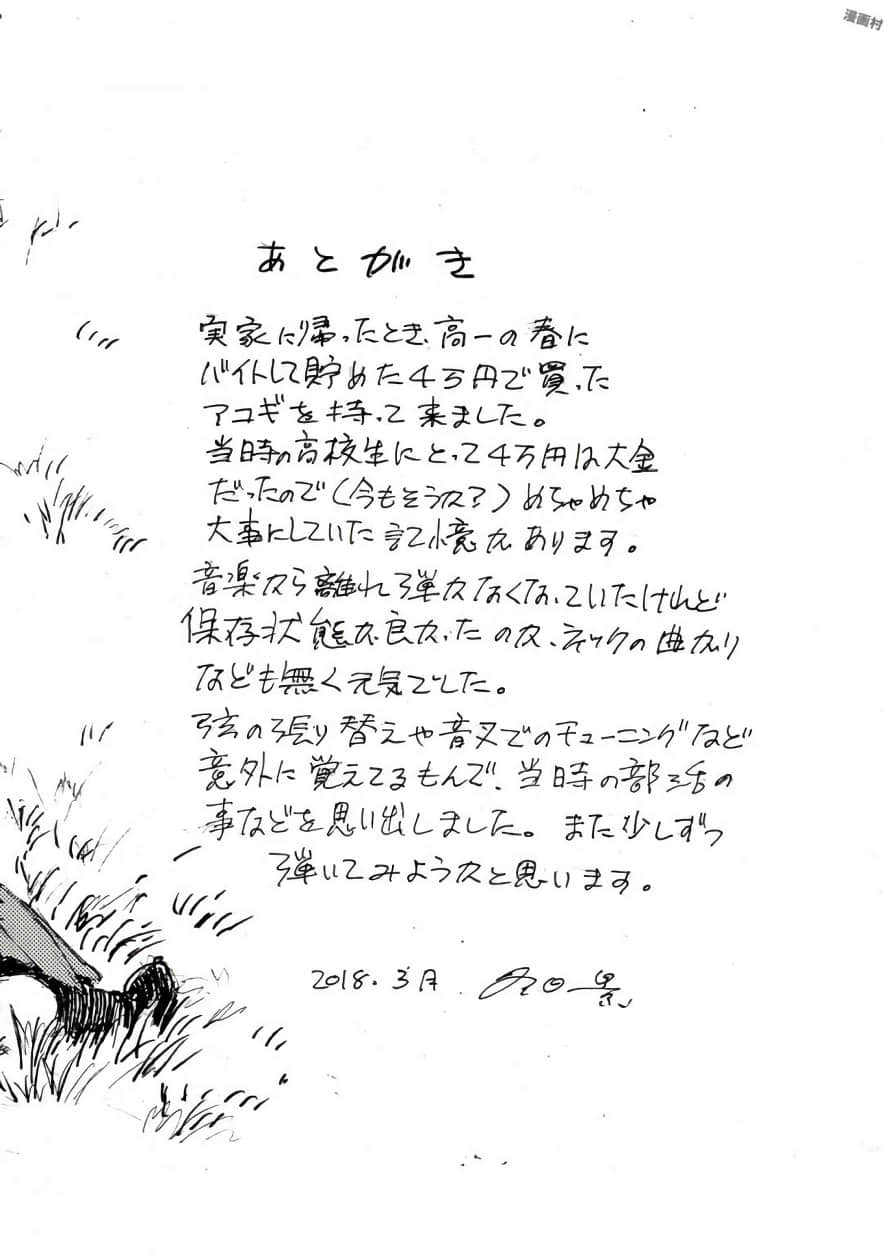 漫画村
あとがき
実家に帰ったとき、高一の春に
バイトして貯めた4万円で買った
アコギを持って来ました。
当時の高校生にとって4万円は大金
だったので(今もそうか?)めちゃめちゃ
大事にしていた記憶があります。
音楽から離れ弾かなくなっていたけれど
保存状態が良かったのか、ネックの曲がり
なども無く元気でした。
弦の張り替えや音叉でのチューニングなど
意外に覚えてるもんで、当時の部活の
事などを思い出しました。また少しずつ
弾いてみようかと思います。
2018.3月